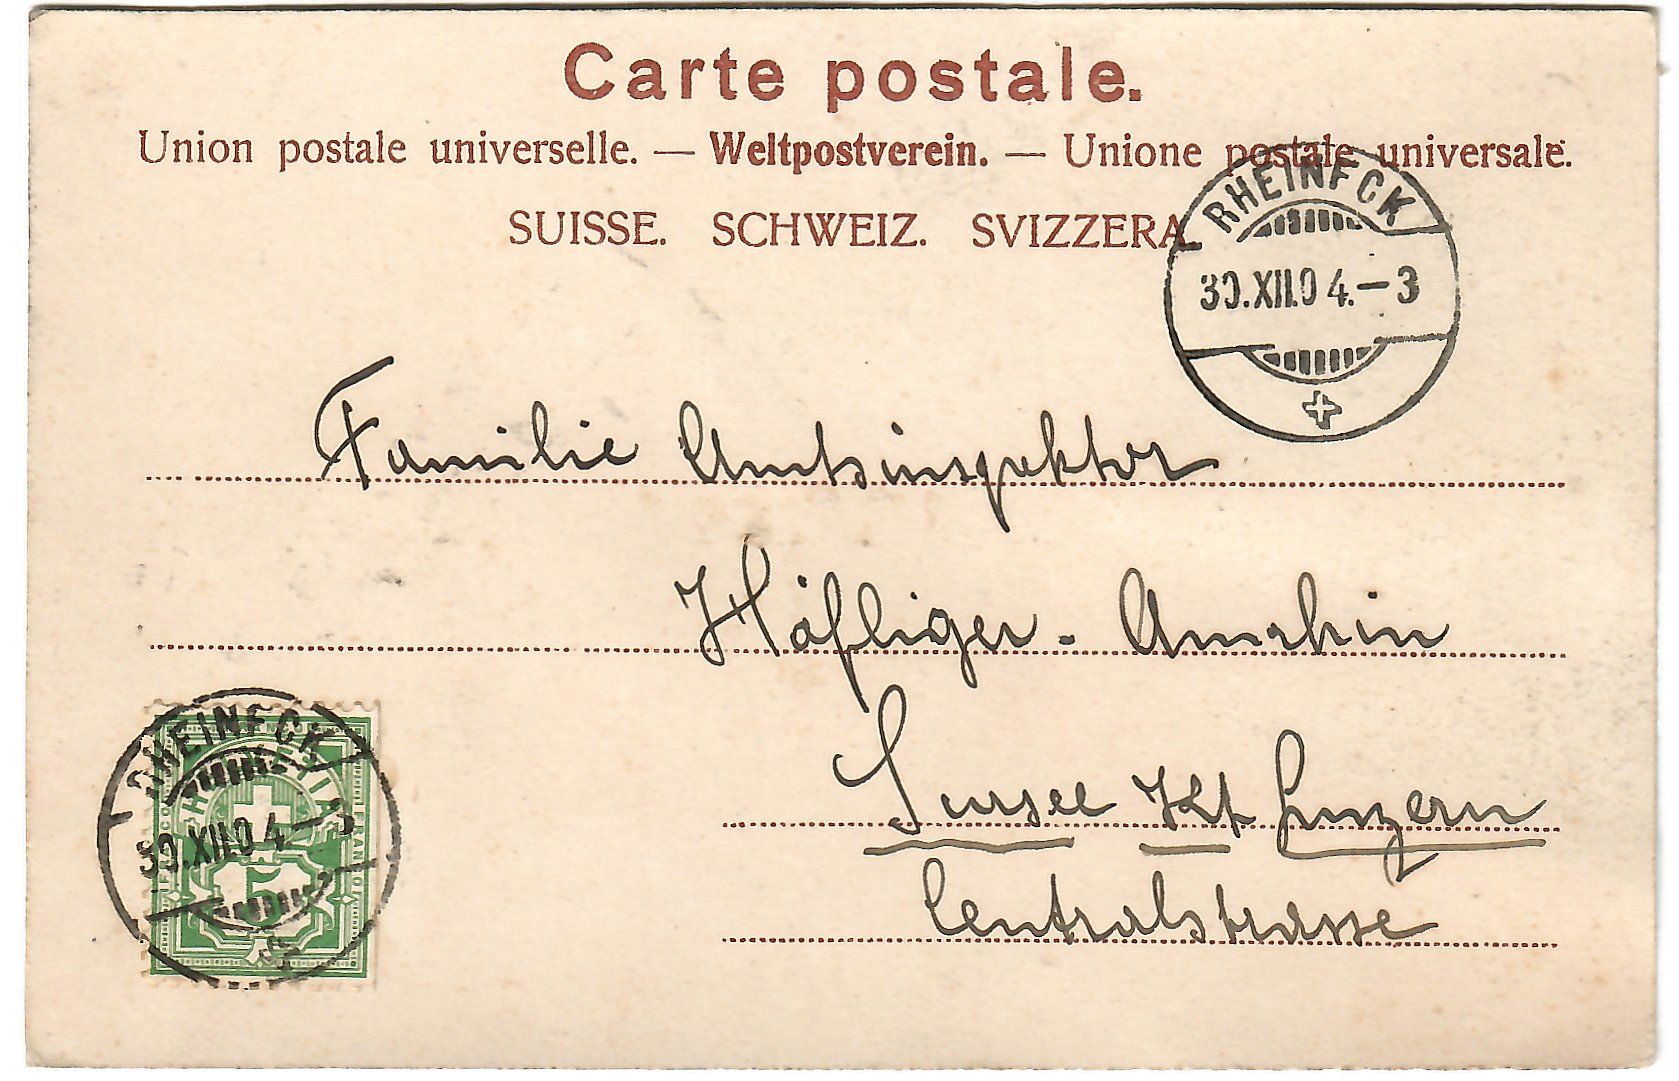 Carte postale.
Union postale universelle. — Weltpostverein. — Unione postale universale.
SUISSE. SCHWEIZ. SVIZZERA.
RHEINECK
30.XII.04.–3
Familie Amtsinspektor
Häfliger - Amrhin
Sursee Kt Luzern
Centralstrasse
RHEINECK
30.XII.04.–3
HELVETIA
FRANCO
5